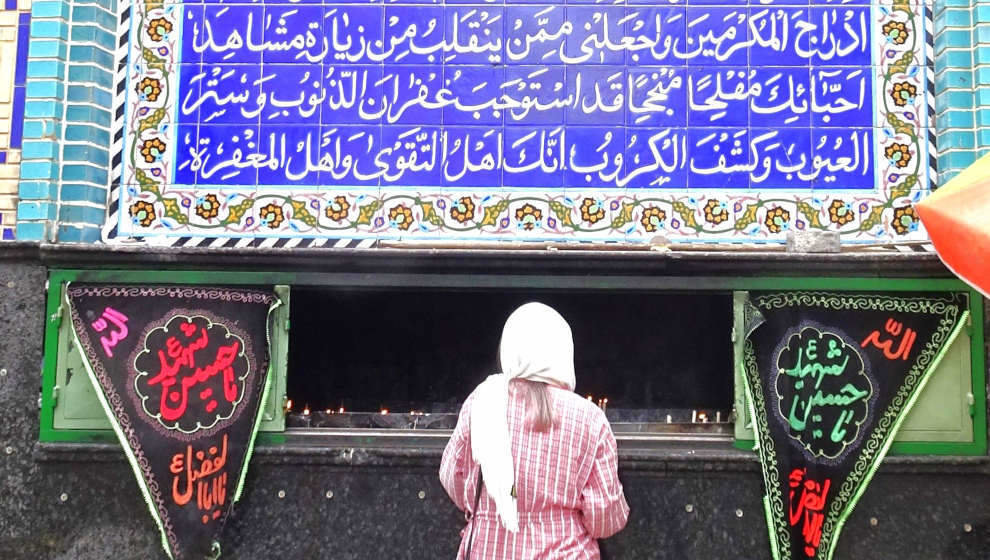 اَدْرَاجَ الْمُكْرَمِينَ وَاجْعَلْنِى مِمَّنْ يَنْقَلِبُ مِنْ زِيَارَةِ مَشَاهِدِ
اَحِبَّائِكَ مُفْلِحًا مُنْجِحًا قَدِ اسْتَوْجَبَ غُفْرَانَ الذُّنُوبِ وَسَتْرَ
الْعُيُوبِ وَكَشْفَ الْكُرُوبِ اِنَّكَ اَهْلُ التَّقْوَىٰ وَاَهْلُ الْمَغْفِرَةِ
الله
یا حسین شهید
یا اباالفضل
الله
یا حسین شهید
یا اباالفضل